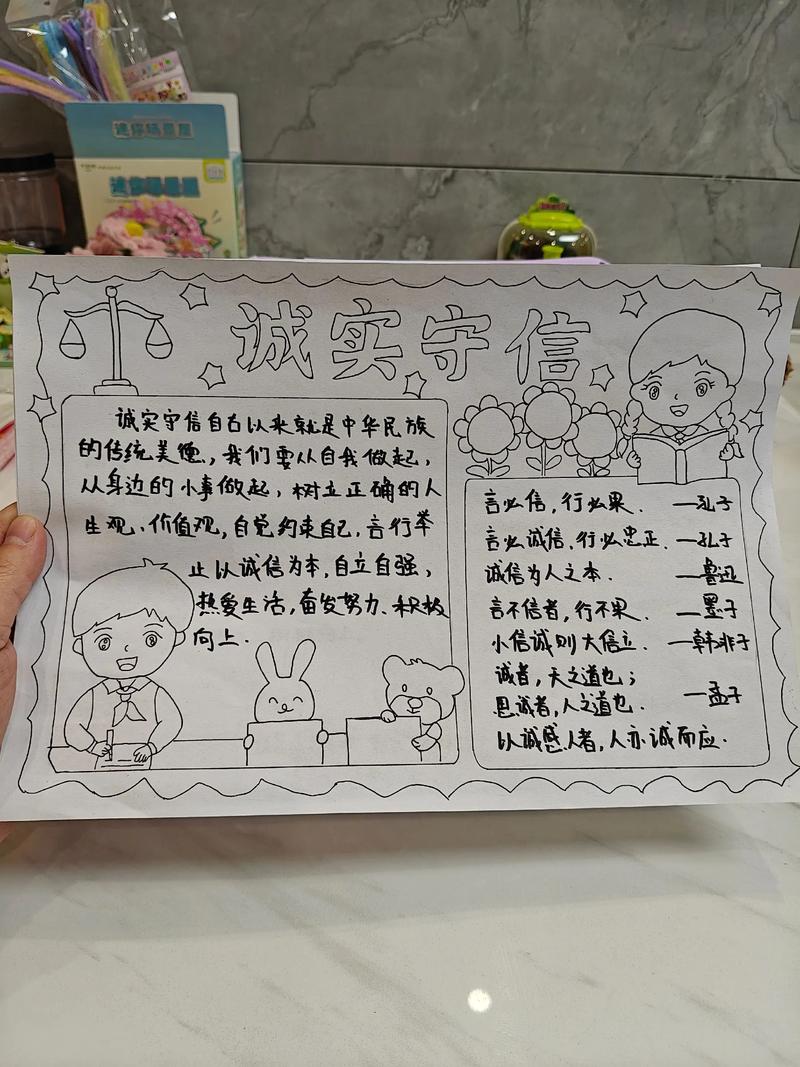 迷你场景屋
迷你场景屋
诚实守信
诚实守信自古以来就是中华民族
的传统美德.,我们要从自我做起,
从身边的小事做起,树立正确的人
生观、价值观,自觉约束自己,言行举
止以诚信为本,自立自强,
热爱生活,奋发努力、积极
向上.
言必信,行必果. —孔子
言必诚信,行必忠正. —孔子
诚信为人之本. —鲁迅
言不信者,行不果. —墨子
小信诚则大信立. —韩非子
诚者,天之道也;
思诚者,人之道也. —孟子
以诚感人者,人亦诚而应.